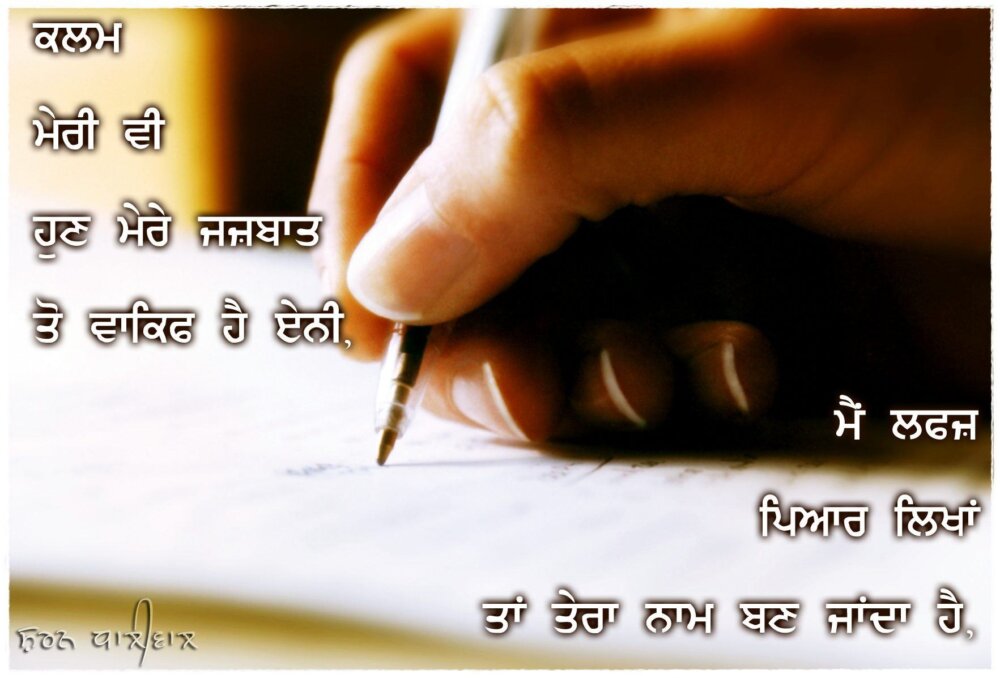 ਕਲਮ
ਮੇਰੀ ਵੀ
ਹੁਣ ਮੇਰੇ ਜਜ਼ਬਾਤ
ਤੋ ਵਾਕਿਫ ਹੈ ਏਨੀ,
ਮੈਂ ਲਫਜ਼
ਪਿਆਰ ਲਿਖਾਂ
ਤਾਂ ਤੇਰਾ ਨਾਮ ਬਣ ਜਾਂਦਾ ਹੈ,